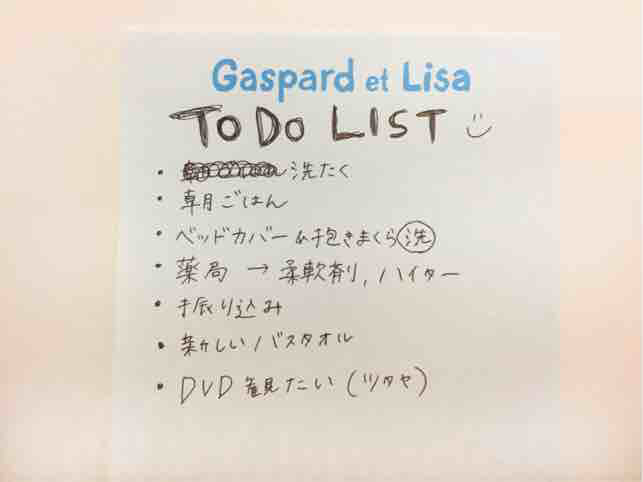 Gaspard et Lisa
To Do LIST
・洗たく
・朝ごはん
・ベッドカバー&抱きまくら 洗
・薬局 → 柔軟剤, ハイター
・振り込み
・新しいバスタオル
・DVD 観たい (ツタヤ)